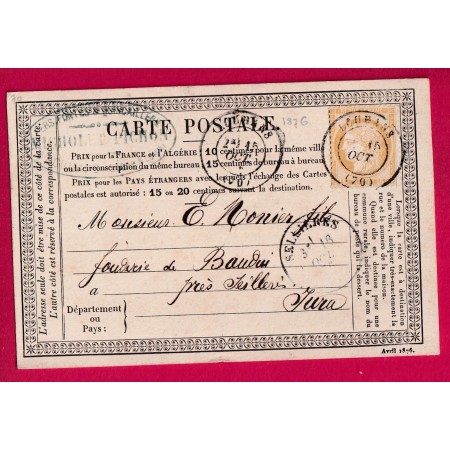 1876
CARTE POSTALE
PRIX pour la FRANCE et l'ALGÉRIE 10 centimes pour la même ville
ou la circonscription du même bureau 15 centimes de bureau à bureau.
PRIX pour les PAYS ÉTRANGERS avec lesquels l'échange des Cartes
postales est autorisé : 15 ou 20 centimes suivant la destination.
15
OCT
(70)
15
OCT
(70)
SELLIÈRES
Monsieur E. Monier fils
fonderie de Baudin
à près Sellières
Jura
Département
ou
Pays :
L'adresse seule doit être mise de ce côté de la carte.
L'autre côté est réservé à la correspondance.
Lorsque la carte est à destination
d'une ville, indiquer très-exactement la
rue et le numéro de la maison.
Quand elle est destinée pour une
commune rurale, indiquer le nom du
bureau de poste qui la dessert.
Avril 1876.